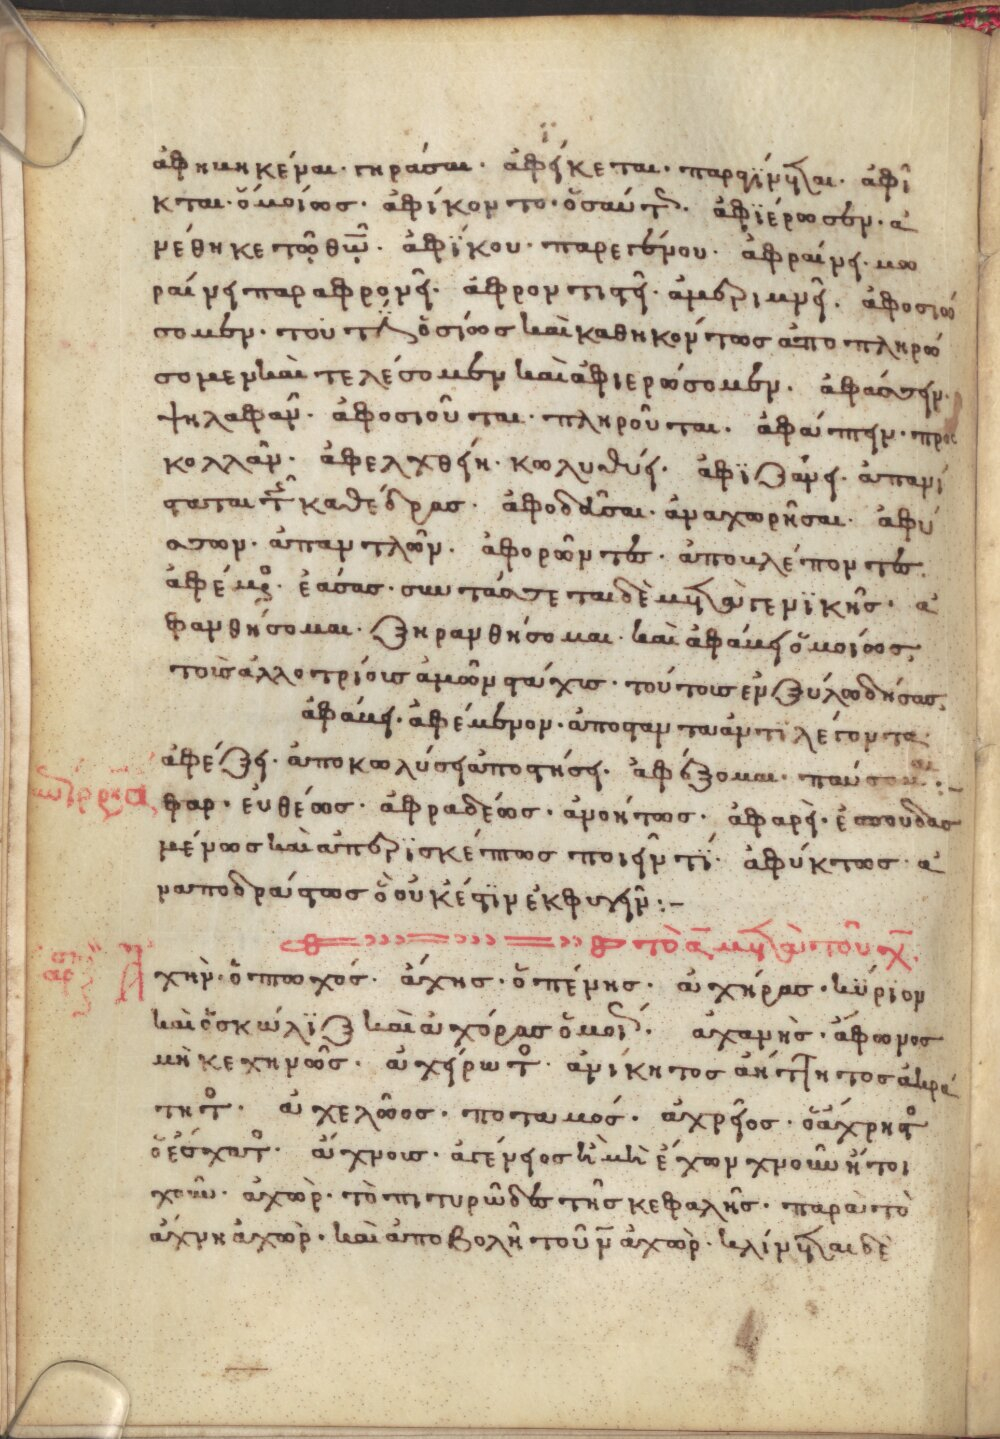 ἀφηκηκέναι· γηράσαι· ἀφίκεται· παραγίνεται· ἀφῖ
κται· ὁμοίως· ἀφίκοντο· ὡσαύτως· ἀφϊέρωσεν· ἀ
νέθηκε τῷ θῶ· ἀφϊκου· παρεγένου· ἀφραίνει· μω
ραίνει παραφρονεῖ· ἀφροντιστεῖ· ἀμεριμνεῖ· ἀφοσιώ
σομεν· τουτέστιν ὁσίως καὶ καθηκόντως ἀποπληρώ
σομεν καὶ τελέσομεν καὶ ἀφιερώσομεν· ἀφάσσειν·
ψηλαφᾶν· ἀφοσιοῦται· πληροῦται· ἀφάπτειν· προς
κολλᾶν· ἀφελχθείη· κωλυθείη· ἀφϊζάνει· ἀπανί
σταται τῆς καθέδρας· ἀφοδεῦσαι· ἀναχωρῆσαι· ἀφύ
σσων· ἀπαντλῶν· ἀφορῶντες· ἀποβλέποντες·
ἀφέμενος· ἐάσας· συντάσσεται δὲ μετὰ γενϊκῆς· ἀ
φανθήσομαι· ξηρανθήσομαι· καὶ ἀφάνει ὁμοίως,
τοῖς ἀλλοτρίοις ἀμῶν στάχις· τούτοις ἐν ξύλω δήσας,
ἀφάνει· ἀφέμενον· ἀποσταντα ἀντϊλέγοντα·
ἀφέξει· ἀποκωλύσει ἀποστήσει· ἀφέξομαι· παύσομαι:–
φαρ· εὐθέως· ἀφραδέως· ἀνοήτως· ἀφαρεὶ· ἐσπουδασ
μένως καὶ ἀπερϊσκέπτως ποιεῖν τϊ· ἀφύκτως· ἀ
ναποδράστως ὃ οὐκ ἔστϊν ἐκφυγεῖν:–
τὸ α μετὰ τοῦ χ.
χήν· ὁ πτωχός· ἀχής· ὁ πένης· αὐχήρας· κύριον
καὶ ὁ σκώληξ καὶ αὐχόρας ὁμοίως· ἀχανὴς· ἄφωνος
μὴ κεχηνῶς· ἀχείρωτος· ἀνίκητος ἀήττητος ἀκρά
τητος· ἀχελῶος· ποταμός· ἀχρεῖος· ὁ ἄχρηστος
ὁ ἔσχατος· ἄχνοις· ἀγένειος καὶ μὴ ἔχων χνοῦν ἤτοι
χοῦν· ἀχὼρ· τὸ πιτυρῶδες τῆς κεφαλῆς· παρὰ τὸ
ἄχνη ἀχνὼρ· καὶ ἀποβολῇ τοῦ ν ἀχὼρ· κλίνεται δὲ